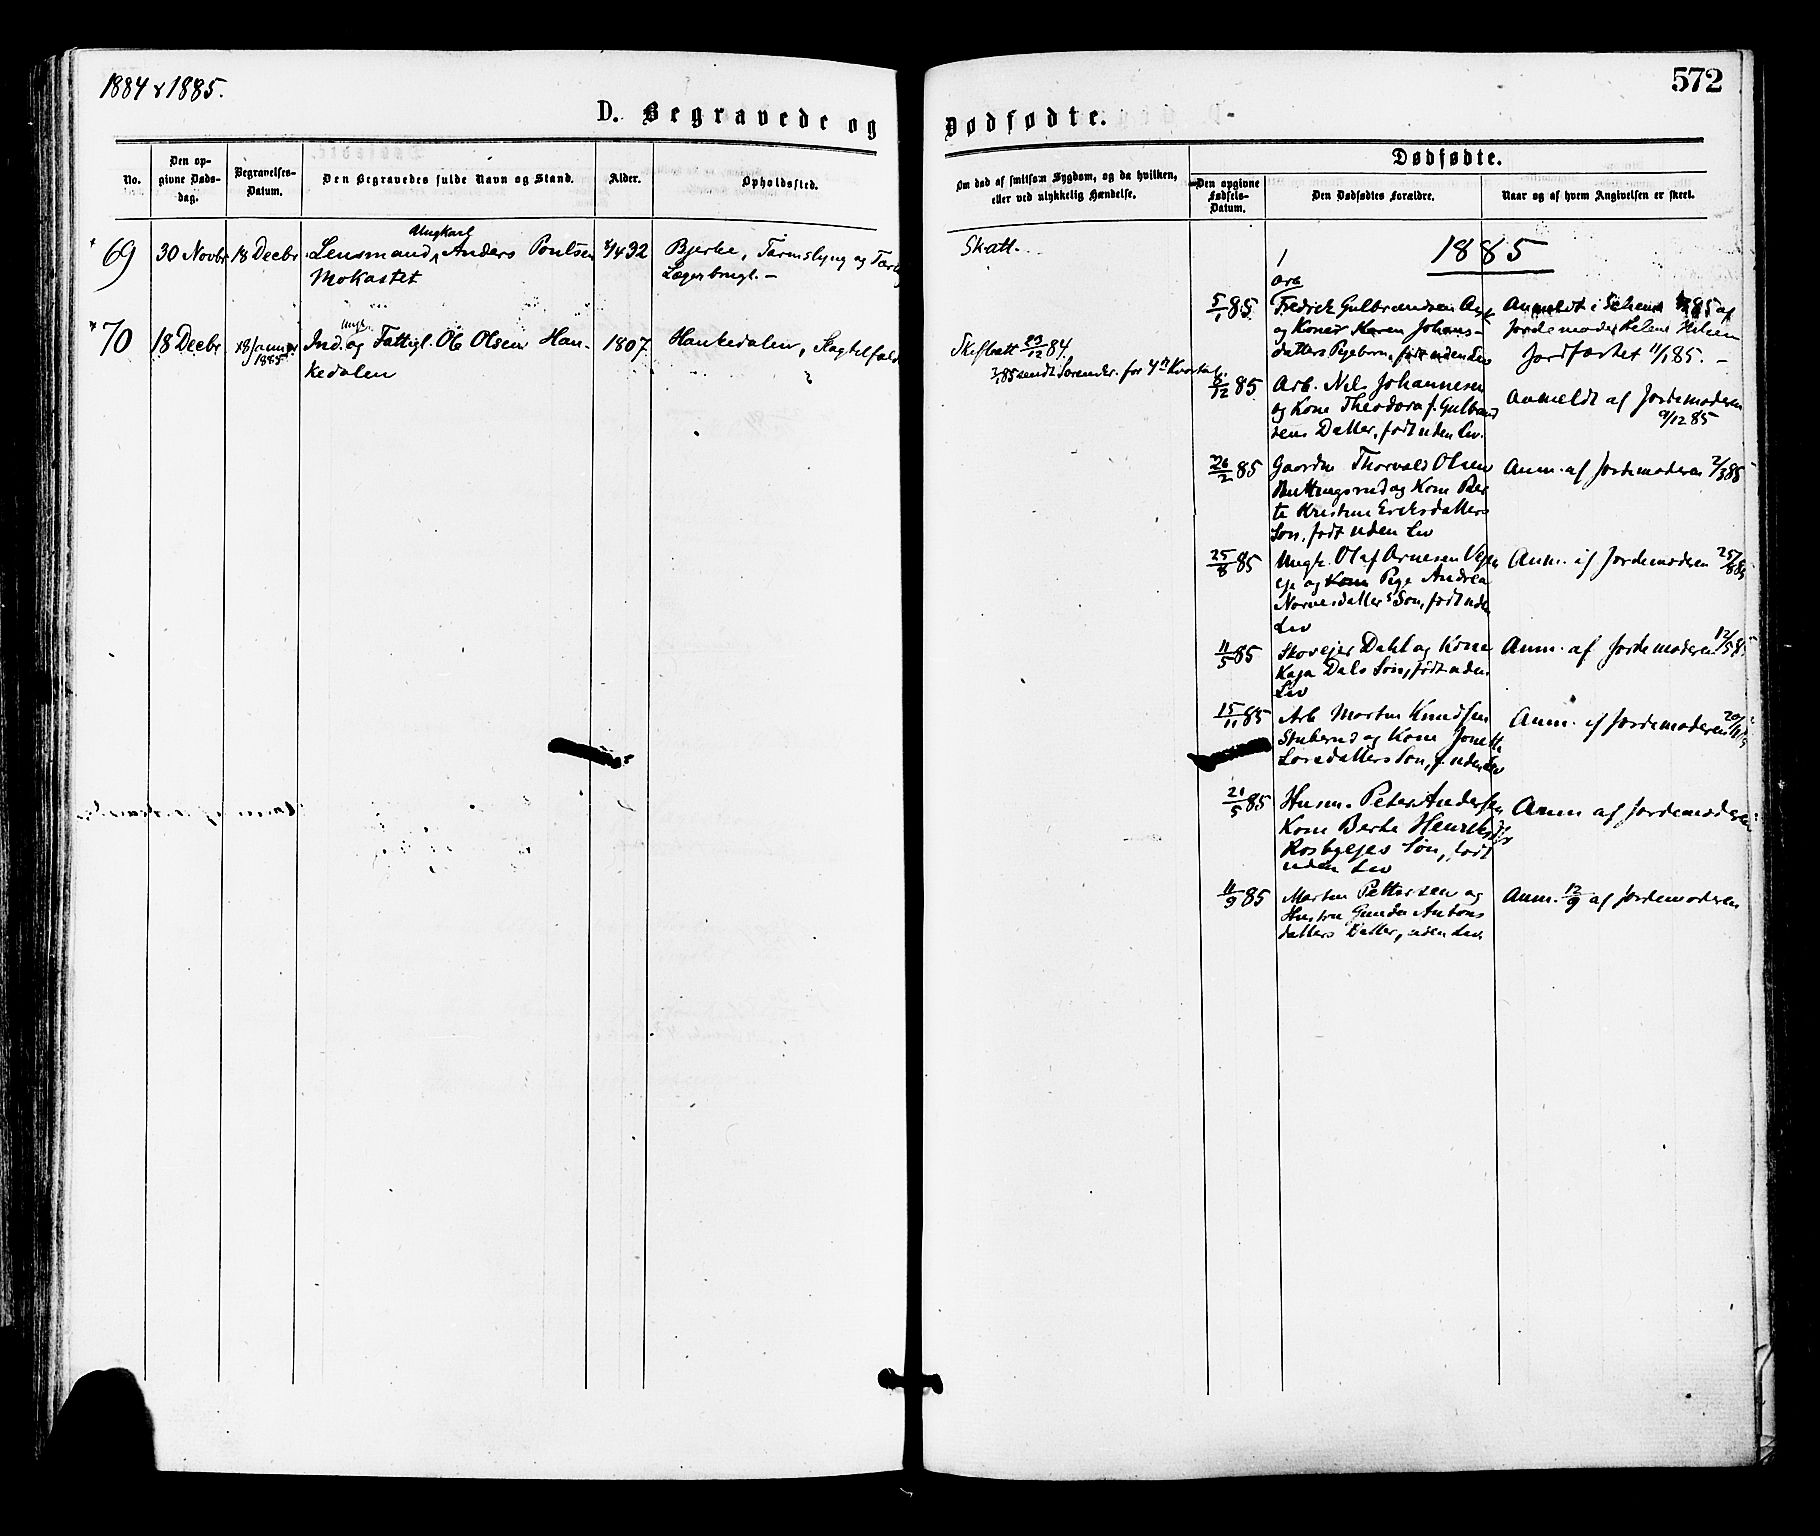 1884 & 1885.
572
D. Begravede og Dødfødte.
No.
Den opgivne Dødsdag.
Begravelses-Datum.
Den Begravedes fulde Navn og Stand.
Alder.
Opholdssted.
Om død af smitsom Sygdom, og da hvilken,
eller ved ulykkelig Hændelse.
Dødfødte.
Den opgivne Fødsels-Datum.
Den Dødfødtes Forældre.
Naar og af hvem Angivelsen er skeet.
69 30 Novbr 18 Decbr Lensmand, Ungkarl Anders Poulsen
Mokastet
1432
Bjerke, og
Skatt.
70 18 Decbr 18 Januar 1885 Ind. og Fattigl. Ole Olsen Han-
kedalen
1807.
Hankedalen,
Skifteatt 23/12 84.
for 4de Kvartal.
1885
Arb
5/1 85 Fredrik Gulbrandsen
og Kone Karen Johans-
datters Pigebarn, født uden Liv
Anmeldt i af
Jordemoder Helene
Jordfæstet 11/1 85. -
/12 85 Arb. Nils Johannesen
og Kone Theodora f. Gulbrand
sens Datter, født uden Liv.
Anmeldt af Jordemoderen
9/12 85
26/2 85 Gaardm Thorvald Olsen
og Kone Ber
te Kristine Eriksdatters
Søn, født uden Liv
Anm. af Jordemoderen 2/3 85
25/8 85 Ungk. Olaf Arnesen
og Kone Pige Andrea
Narvesdatters Søn, født uden
Liv
Anm. af Jordemoderen 25/8 85
11/5 85 Skoveier Dahl og Kone
Kaja Dals Søn, født uden
Liv
Anm. af Jordemoderen 12/5 85
15/11 85 Arb Martin Knudsen
Stuberud og Kone Jonette
Larsdatters Søn, f. uden Liv
Anm. af Jordemoderen 20/11
21/5 85 Husm. Peter Andersen
Kone Berte
Søn, født
uden Liv
Anm af Jordemoderen
11/9 85 Martin Pettersen og
Hustru Gunda Antons
datters Datter, uden Liv.
Anm. 12/9 af Jordemoderen